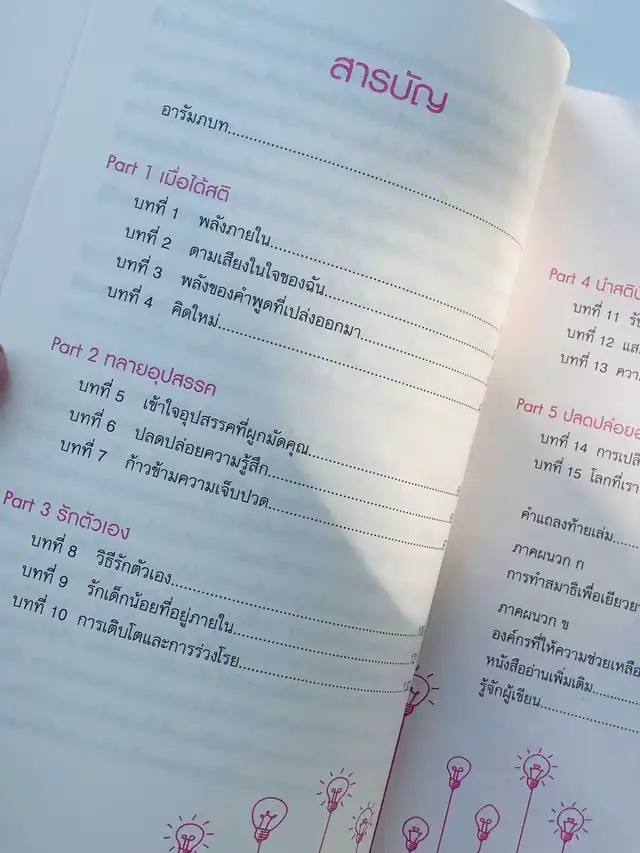 สารบัญ
อารัมภบท
Part 1 เมื่อได้สติ
บทที่ 1 พลังภายใน
บทที่ 2 ตามเสียงในใจของฉัน
บทที่ 3 พลังของคำพูดที่เปล่งออกมา
บทที่ 4 คิดใหม่
Part 2 ทลายอุปสรรค
บทที่ 5 เข้าใจอุปสรรคที่ผูกมัดคุณ
บทที่ 6 ปลดปล่อยความรู้สึก
บทที่ 7 ก้าวข้ามความเจ็บปวด
Part 3 รักตัวเอง
บทที่ 8 วิธีรักตัวเอง
บทที่ 9 รักเด็กน้อยที่อยู่ภายใน
บทที่ 10 การเติบโตและการร่วงโรย
Part 4 นำสติ
บทที่ 11
บทที่ 12
บทที่ 13
Part 5 ปลดปล่อย
บทที่ 14
บทที่ 15 โลกที่เรา
คำแถลงท้ายเล่ม
ภาคผนวก ก
การทำสมาธิเพื่อเยียวยา
ภาคผนวก ข
องค์กรที่ให้ความช่วยเหลือ
หนังสืออ่านเพิ่มเติม
รู้จักผู้เขียน